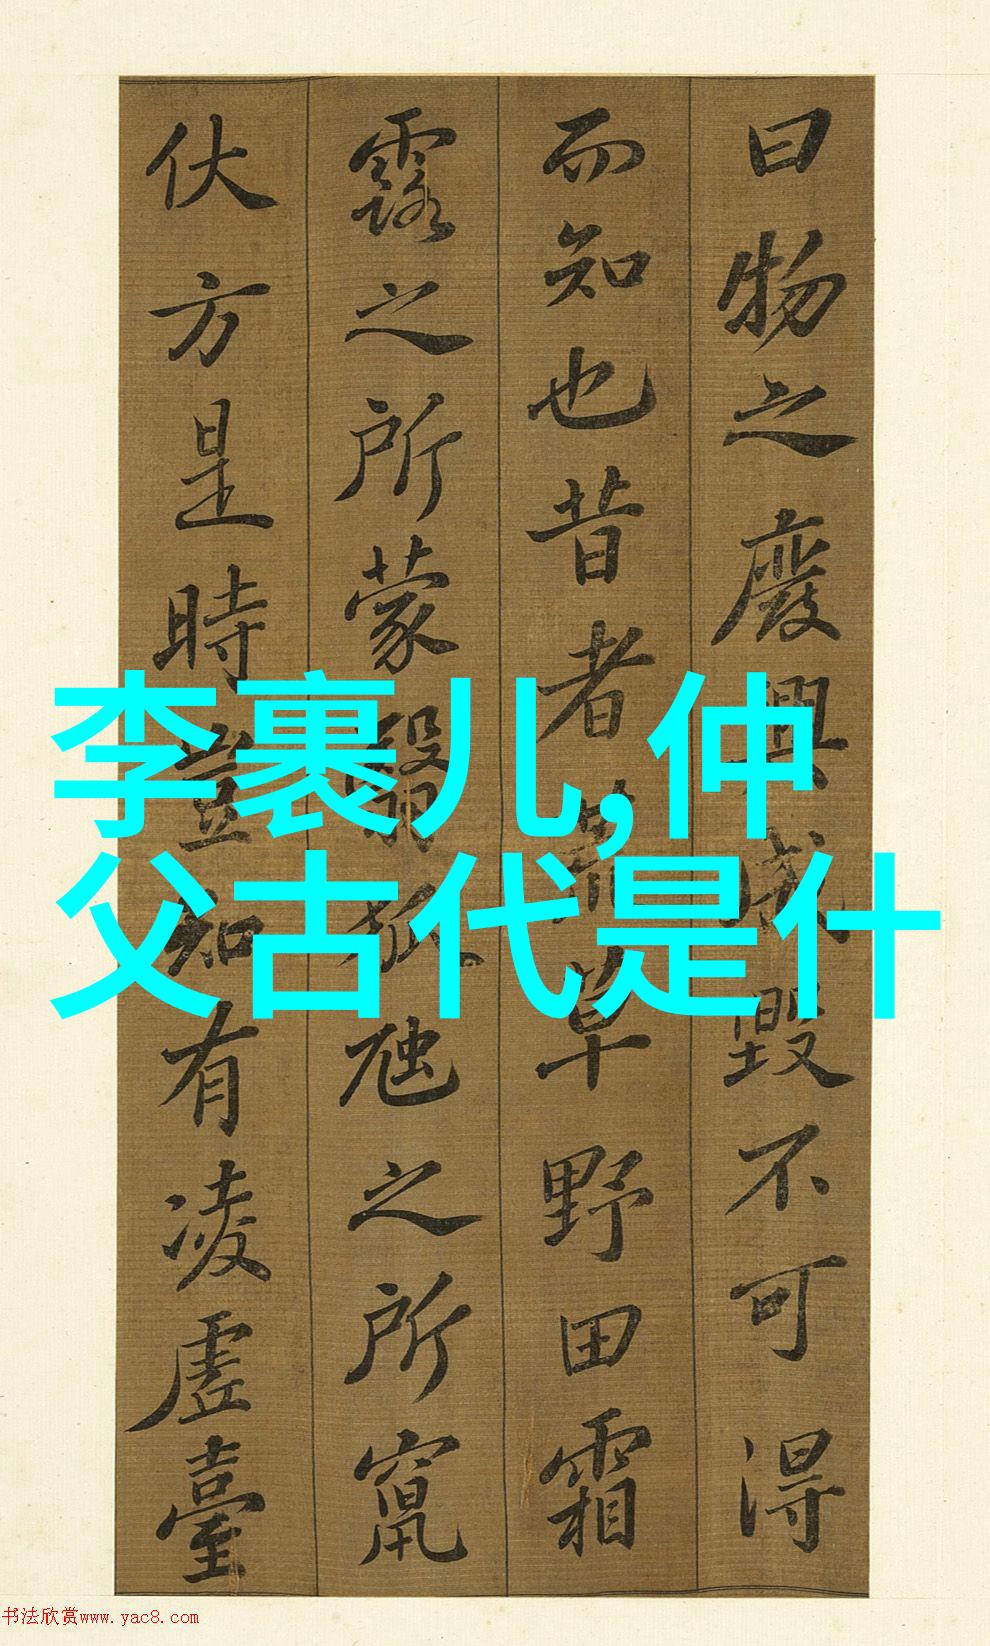 曰物之廢興成毀不可得
而知也昔者荒草野田霜
露之所蒙翳狐虺之所竄
伏方是時豈知有凌虛臺
李裹儿,仲
父古代是什
书法欣赏www.yac8.com